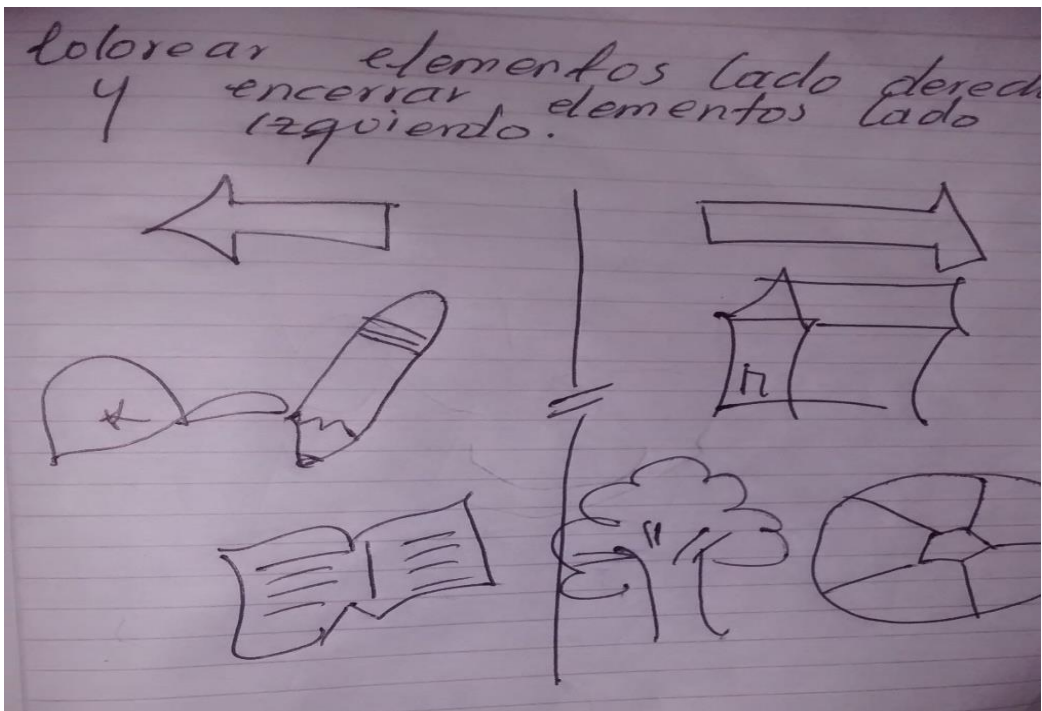 Colorear elementos lado derech
y encerrar, elementos lado
izquierdo.